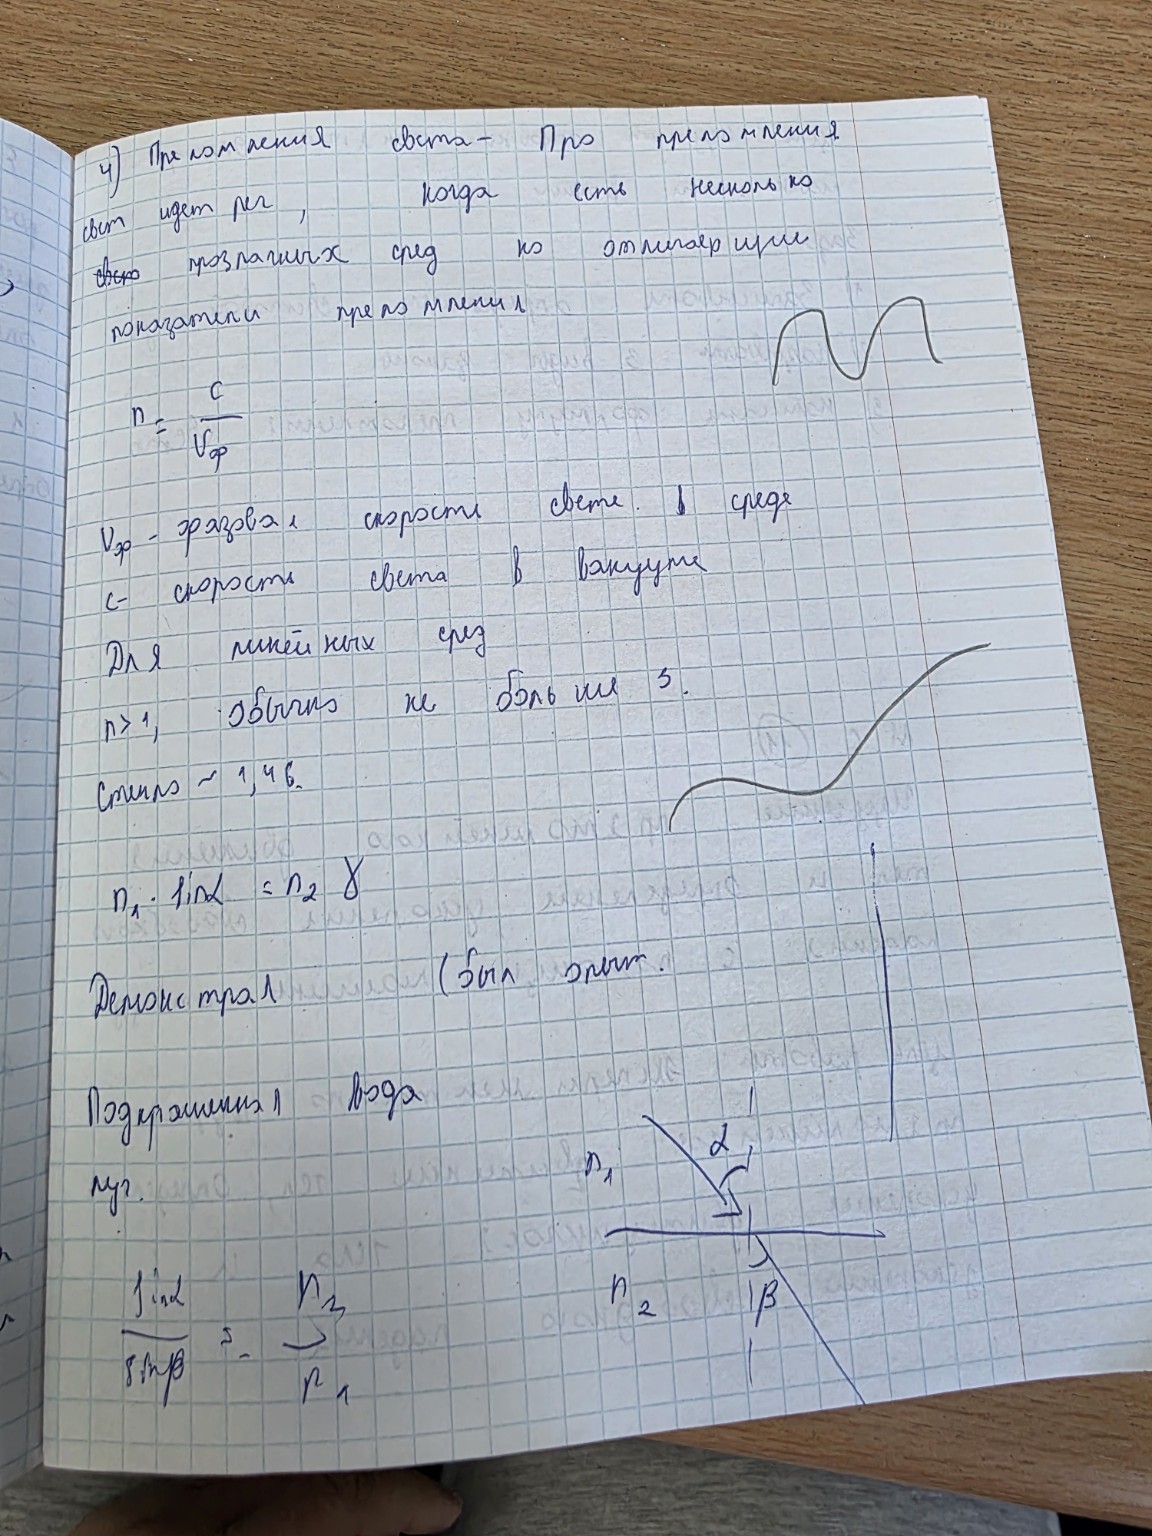 4) Преломления света - Про преломления
свет идет реч, когда есть несколько
прозрачных сред но отличаерщие
показатели преломления
n = c / Vф
Vф - фазовая скорость свете в среде
c - скорость света в вакууме
Для линейных сред
n > 1, обычно не больше 3.
Стекло ~ 1,46.
n₁ · sinα = n₂ γ
Демонстрал (был опыт.
Подкрашенная вода
луч.
n₁ α
n₂ β
sinα / sinβ = n₂ / n₁